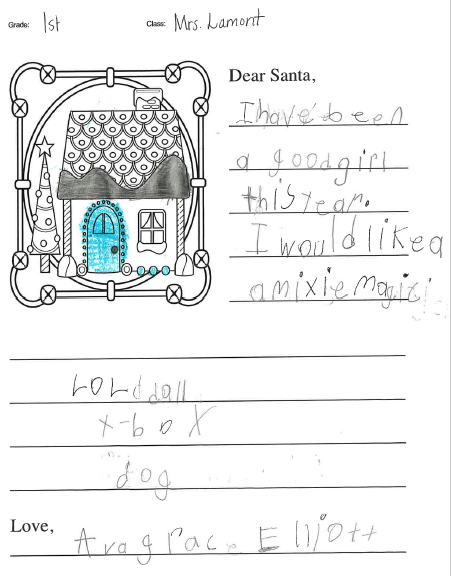 Grade: 1st Class: Mrs. Lamont
Dear Santa,
I have been
a good girl
this year.
I would like a
a mixie magic
LOL doll
x-box
dog
Love,
Avagrace Elliott